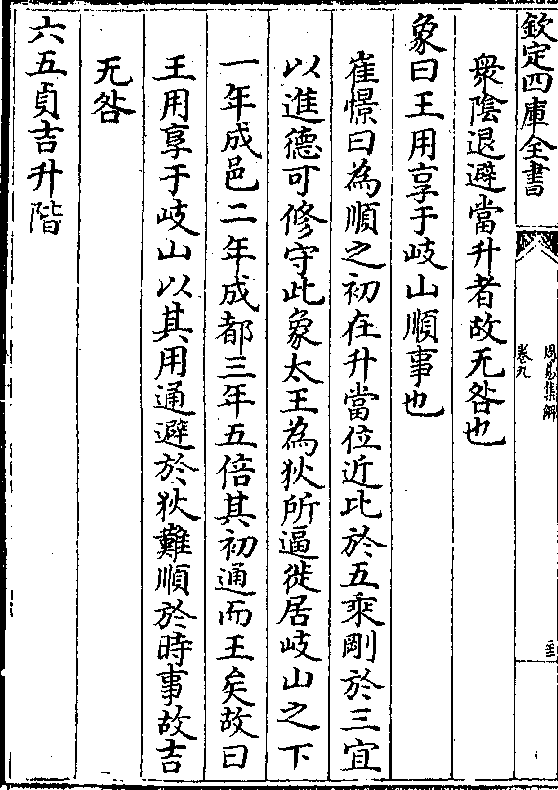 欽定四庫全書
周易集解
卷九
衆陰退避當升者故无咎也
象曰王用享于岐山順事也
崔憬曰為順之初在升當位近比於五乘剛於三宜
以進德可修守此象太王為狄所逼徙居岐山之下
一年成邑二年成都三年五倍其初通而王矣故曰
王用享于岐山以其用通避於狄難順於時事故吉
无咎
六五貞吉升階